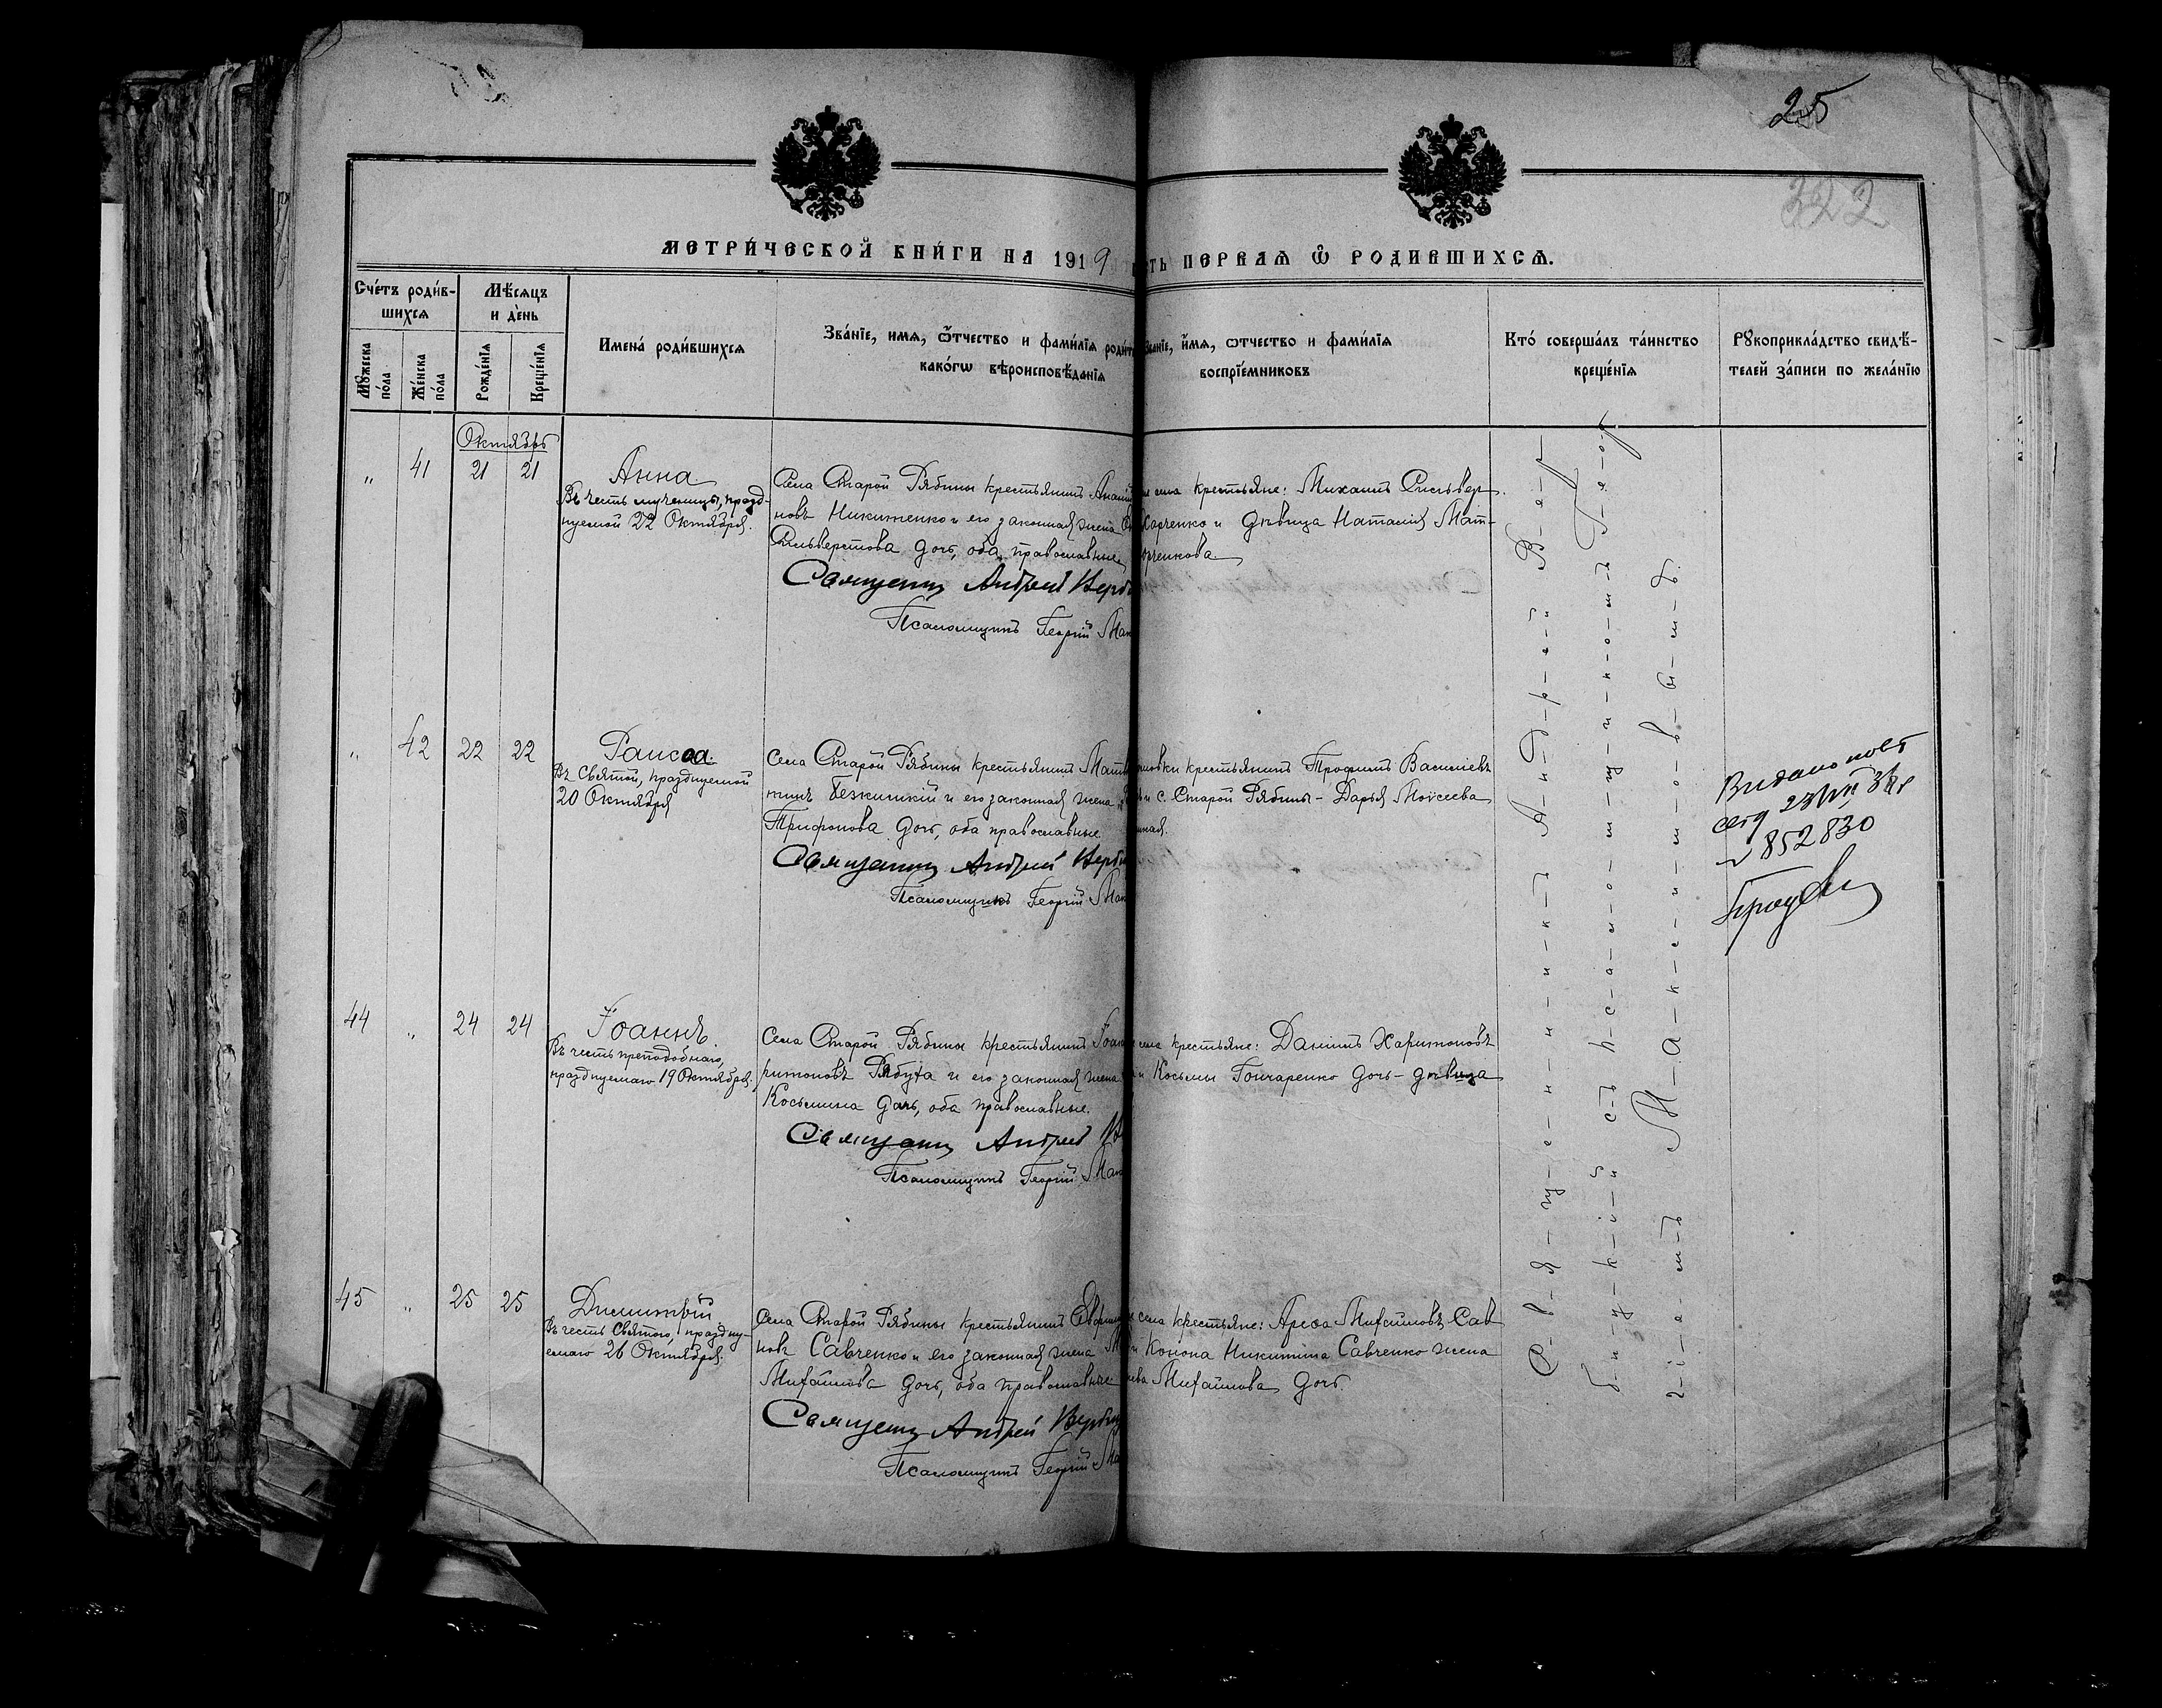 25
322
МЕТРИ́ЧЕСКОЙ КНИ́ГИ НА 1919
ПЕРВАѦ Ѡ҆ РОДИВШИХСѦ.
Сче́тъ роди́в-
шихсѧ
Мꙋжеска
по́ла
Же́нска
по́ла
Мѣ́сѧцъ
и де́нь
Рожде́нїѧ
Креще́нїѧ
Имена́ роди́вшихсѧ
Зва́нїе, имѧ, ѻ҆́тчество и фами́лїѧ
како́гѡ вѣроисповѣ́данїѧ
Зва́нїе, и҆́мѧ, ѻтчество и фами́лїѧ
воспрїе́мниковъ
Кто́ соверша́лъ та́инство
креще́нїѧ
Рꙋкоприкла́дство свидѣ́-
телей за́писи по жела́нїю
Октябрь
" 41 21 21
Анна
Въ честь мученицы, празд-
нуемой 22 Октября.
Села Старой Рябины крестьянинъ
новъ Никитенко и его законная жена
Сильверстова дочь, оба православные
Священникъ Андрей
Псаломщикъ Георгій
села крестьяне: Михаилъ Сильвер-
Харченко и дѣвица Наталія Мат-
" 42 22 22
Раиса
Въ Святой, празднуемой
20 Октября
Села Старой Рябины крестьянинъ
и его законная жена
Трифонова дочь, оба православные
Священникъ Андрей
Псаломщикъ Георгій
крестьянинъ Трофимъ Васильевъ
и с. Старой Рябины - Дарья Моѵсеева
Видано повт
свід 23/VII 38 г
№ 852830
44 " 24 24
Іоаннъ.
Въ честь преподобнаго,
празднуемаго 19 Октября.
Села Старой Рябины крестьянинъ
ритоновъ Рябуха и его законная жена
Косьмина дочь, оба православные.
Священникъ Андрей
Псаломщикъ Георгій
села крестьяне: Даніилъ Харитоновъ
и Косьмы Гончаренко дочь - дѣвица
45 " 25 25
Димитрій
Въ честь Святого, праздну-
емаго 26 Октября.
Села Старой Рябины крестьянинъ
новъ Савченко и его законная жена
Михайлова дочь, оба православные
Священникъ Андрей
Псаломщикъ Георгій
села крестьяне: Михайловъ Сав
и Конона Никитина Савченко жена
Михайлова дочь.
С-в-я-щ-е-н-н-и-к-ъ А-н-д-р-е-й В-е-р-
б-и-ц-к-і-й съ п-с-а-л-о-м-щ-и-к-о-м-ъ Г-е-о-р-
г-і-е-м-ъ М-а-к-с-и-м-о-в-ы-м-ъ.